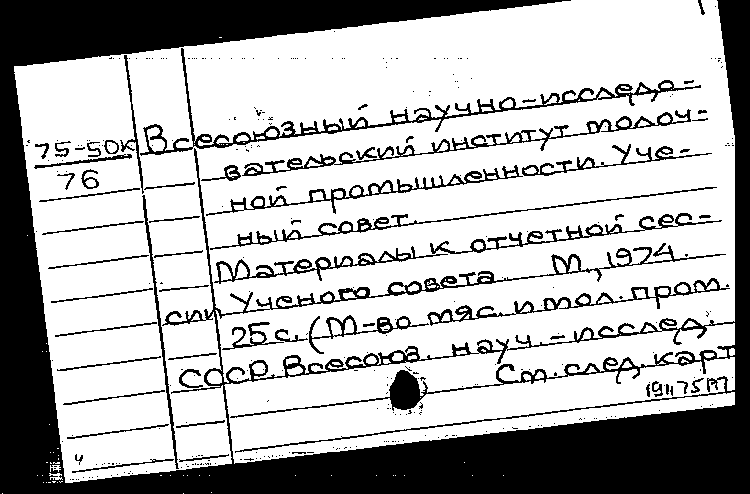 75-50к Всесоюзный научно-исследо-
76 вательский институт молоч-
ной промышленности. Уче-
ный совет.
Материалы к отчетной сес-
сии Ученого совета М., 1974.
25с. (М-во мяс. и мол. пром.
СССР. Всесоюз. науч.-исслед.
См. след. карт
ч